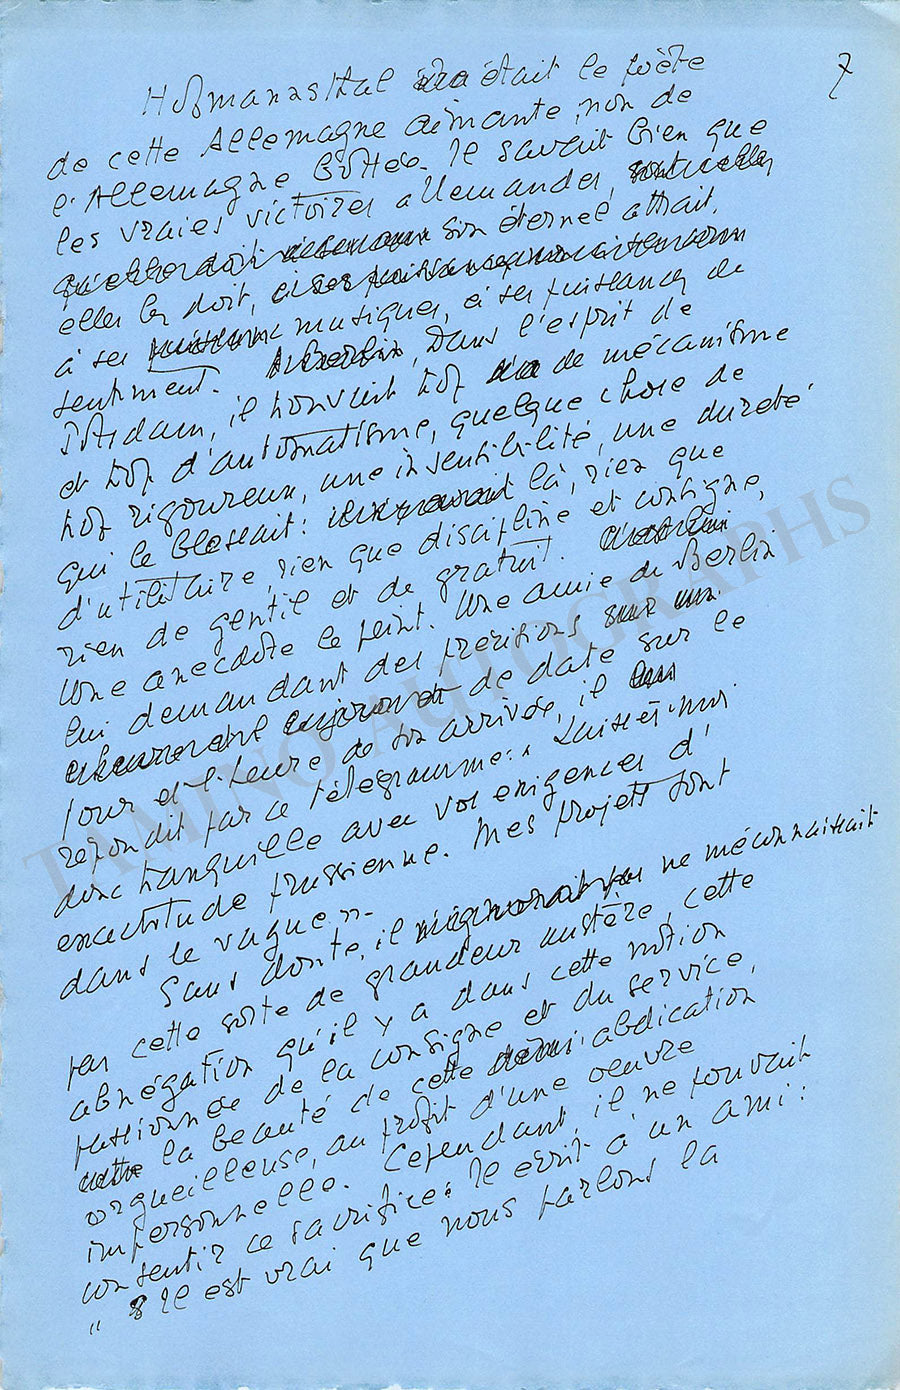 7
Hofmannsthal était le poète
de cette Allemagne aimante, non de
l'Allemagne bottée. Il savait bien que
les vraies victoires allemandes,
son éternel attrait,
elle les doit,
à ses musiques, à ses puissances de
sentiment. Dans l'esprit de
Potsdam, il trouvait trop de mécanisme
et trop d'automatisme, quelque chose de
trop rigoureux, une insensibilité, une dureté
qui le blessait: là, rien que
d'utilitaire, rien que discipline et consigne,
rien de gentil et de gratuit.
Une anecdote le peint. Une amie de Berlin
lui demandant des précisions
de date sur le
jour et l'heure de son arrivée, il
répondit par ce télégramme: « Laissez-moi
donc tranquille avec vos exigences d'
exactitude prussienne. Mes projets sont
dans le vague ».
Sans doute, il ne méconnaissait
pas cette sorte de grandeur austère, cette
abnégation qu'il y a dans cette notion
passionnée de la consigne et du service,
la beauté de cette abdication
orgueilleuse, au profit d'une oeuvre
impersonnelle. Cependant, il ne pouvait
consentir ce sacrifice: Il écrit à un ami:
" Il est vrai que nous parlons la
TAMINO AUTOGRAPHS